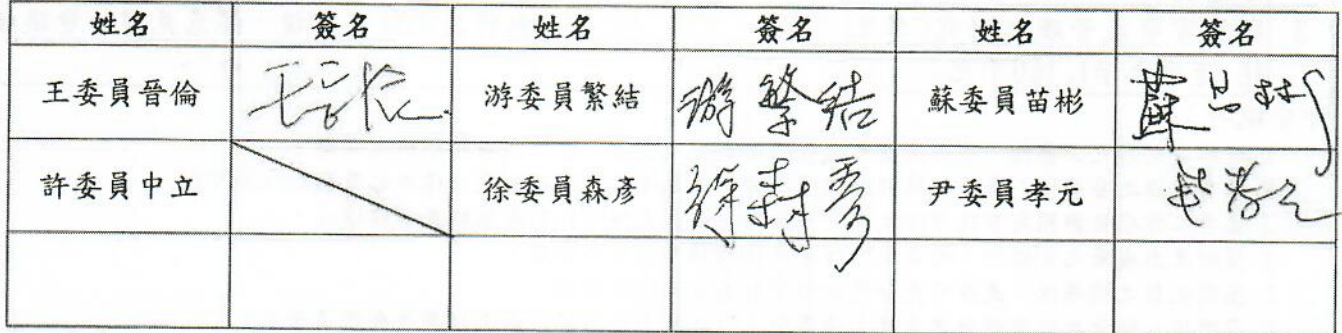 姓名 簽名 姓名 簽名 姓名 簽名
王委員晉倫 王晉倫 游委員繁結 游繁結 蘇委員苗彬 蘇苗彬
許委員中立 徐委員森彥 徐森彥 尹委員孝元 尹孝元